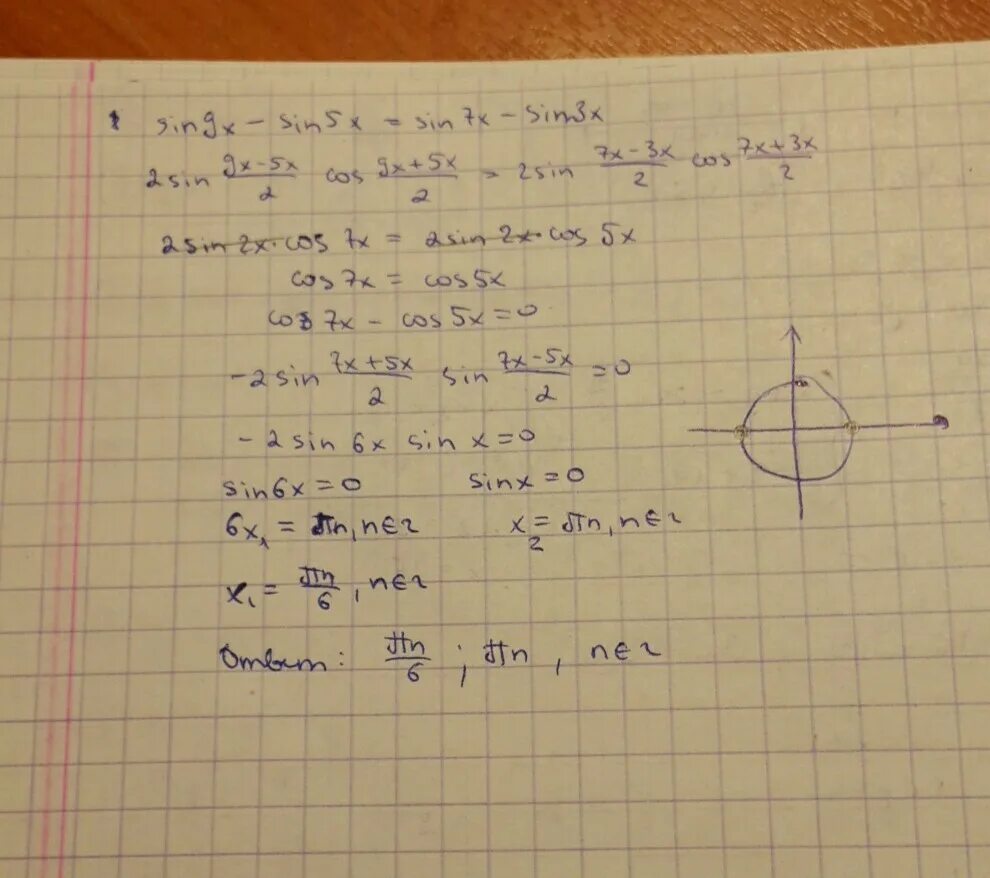 1 sin9x − sin5x = sin7x − sin3x
2sin (9x−5x)/2 cos (9x+5x)/2 = 2sin (7x−3x)/2 cos (7x+3x)/2
2sin 2x · cos 7x = 2sin 2x · cos 5x
cos7x = cos5x
cos 7x − cos 5x = 0
−2sin (7x+5x)/2 sin (7x−5x)/2 = 0
−2 sin 6x sin x = 0
sin6x = 0 sinx = 0
6x₁ = πn, n∈z x₂ = πn, n∈z
x₁ = πn/6, n∈z
Ответ: πn/6 ; πn, n∈z